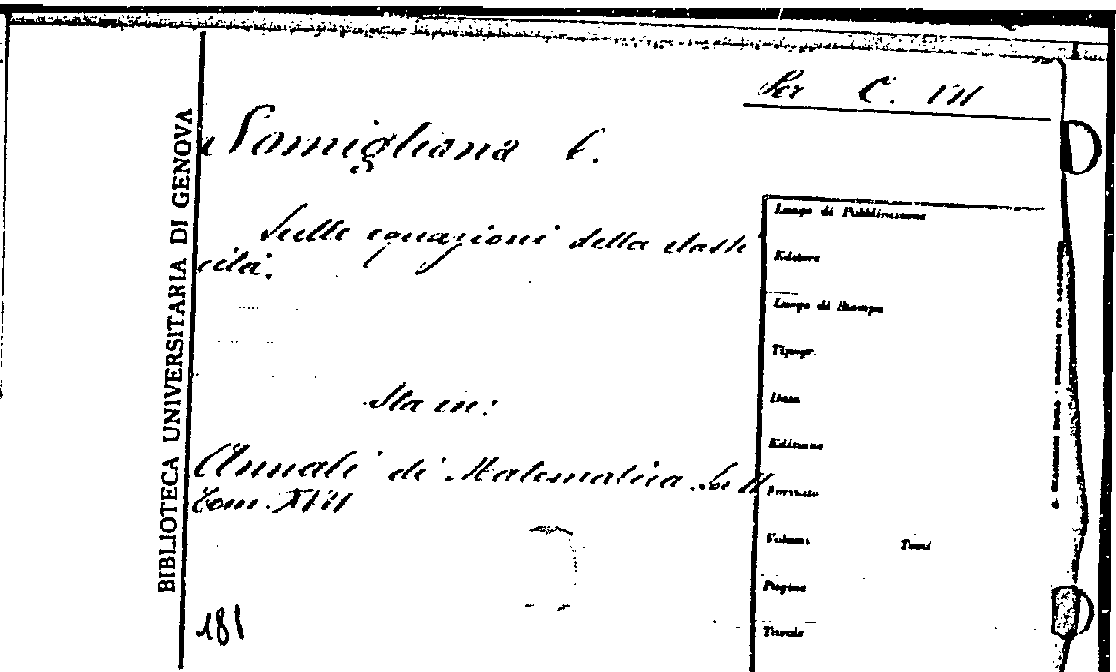 Per C. VII
Somigliana C.
Sulle equazioni della elasti
cità.
Sta in:
Annali di Matematica. Ser II
Tom. XVII
181
BIBLIOTECA UNIVERSITARIA DI GENOVA
Luogo di Pubblicazione
Editore
Luogo di Stampa
Tipogr.
Data
Edizione
Formato
Volumi Tomi
Pagine
Tavole